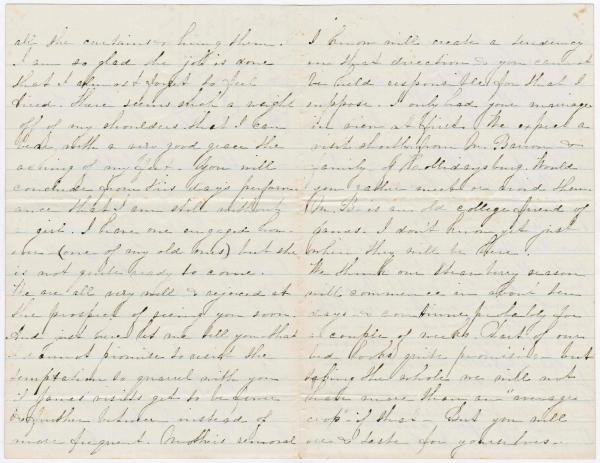 all the curtains & hung them.
I am so glad the job is done
that I almost forget to feel
tired. There seems such a weight
off of my shoulders that I can
bear with a very good grace the
aching of my feet. You will
conclude from this day's perform-
ance that I am still without
a girl. I have one engaged how-
ever (one of my old ones) but she
is not quite ready to come.
We are all very well & rejoiced at
the prospect of seeing you soon.
And just here let me tell you that
I cannot promise to resist the
temptation to quarrel with you
if James' visits get to be fewer
& further between instead of
more frequent. Mother's removal
I know will create a tendency
in that direction & you cannot
be held responsible for that I
suppose. I only had your marriage
in view at first. We expect a
visit shortly from Mr. Barron &
family of Hollidaysburg. Would
you rather meet or avoid them.
Mr. B. is an old college friend of
James. I don't know yet just
when they will be here.
We think our strawberry season
will commence in about ten
days & continue probably for
a couple of weeks. Part of our
bed looks quite promising - but
taking the whole we will not
have more than an "average
crop" if that - But you will
see & taste for yourselves -